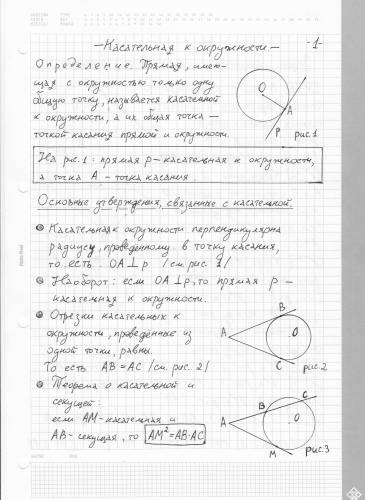 - Касательная к окружности. -
-1-
Определение. Прямая, имею-
щая с окружностью только одну
общую точку, называется касательной
к окружности, а их общая точка —
точкой касания прямой и окружности.
O
A
P
рис.1
На рис.1: прямая p - касательная к окружности,
а точка A - точка касания.
Основные утверждения, связанные с касательной.
Касательная к окружности перпендикулярна
радиусу, проведённому в точку касания,
то есть OA⊥p /см. рис. 1/
Наоборот: если OA⊥p, то прямая p -
касательная к окружности.
Отрезки касательных к
окружности, проведённые из
одной точки, равны.
То есть AB=AC /см. рис. 2/
A
B
O
C
рис.2
Теорема о касательной и
секущей:
если AM-касательная и
AB- секущая, то AM²=AB·AC
A
B
C
O
M
рис.3